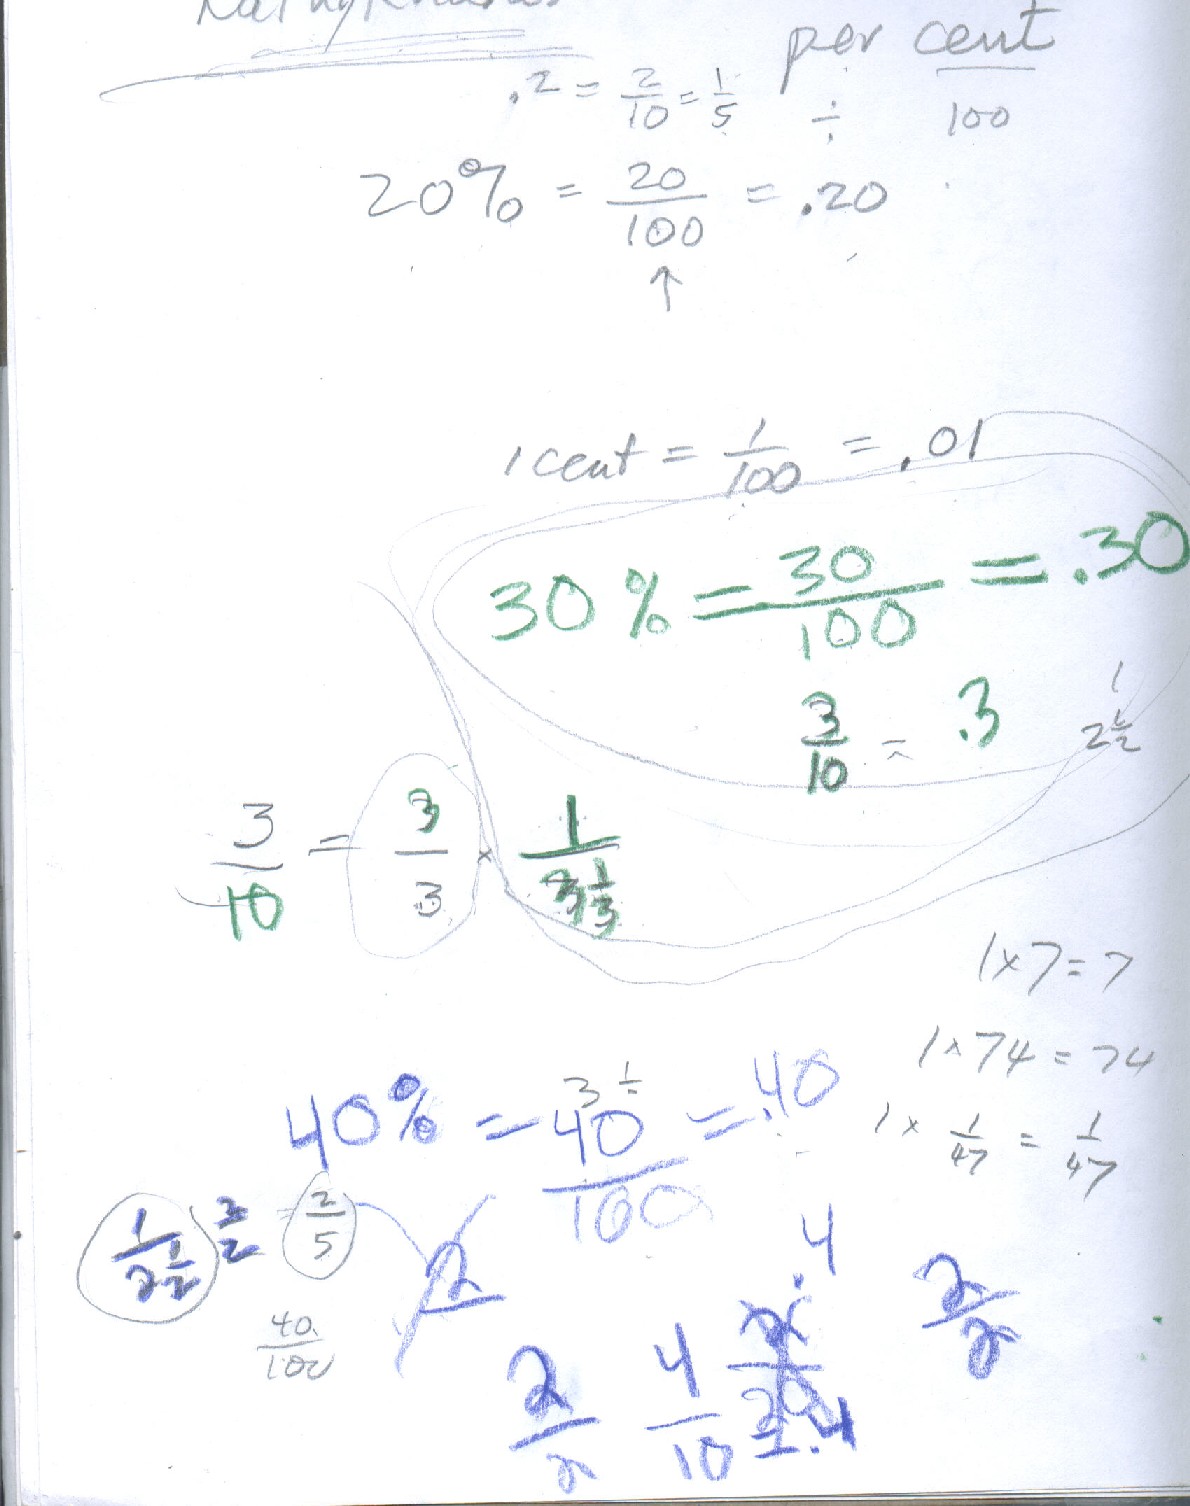 per cent
.2 = 2/10 = 1/5 ÷ 100
20% = 20/100 = .20
↑
1 cent = 1/100 = .01
30% = 30/100 = .30
3/10 = .3
1
2 1/2
3/10 = 3/3 × 1/3 1/3
1×7=7
1×74=74
1× 1/47 = 1/47
3 1
40% = 40/100 = .40
1/2 1/2 2/2 = 2/5
2
40/100
.4
2/2
2/2 4/10 .4